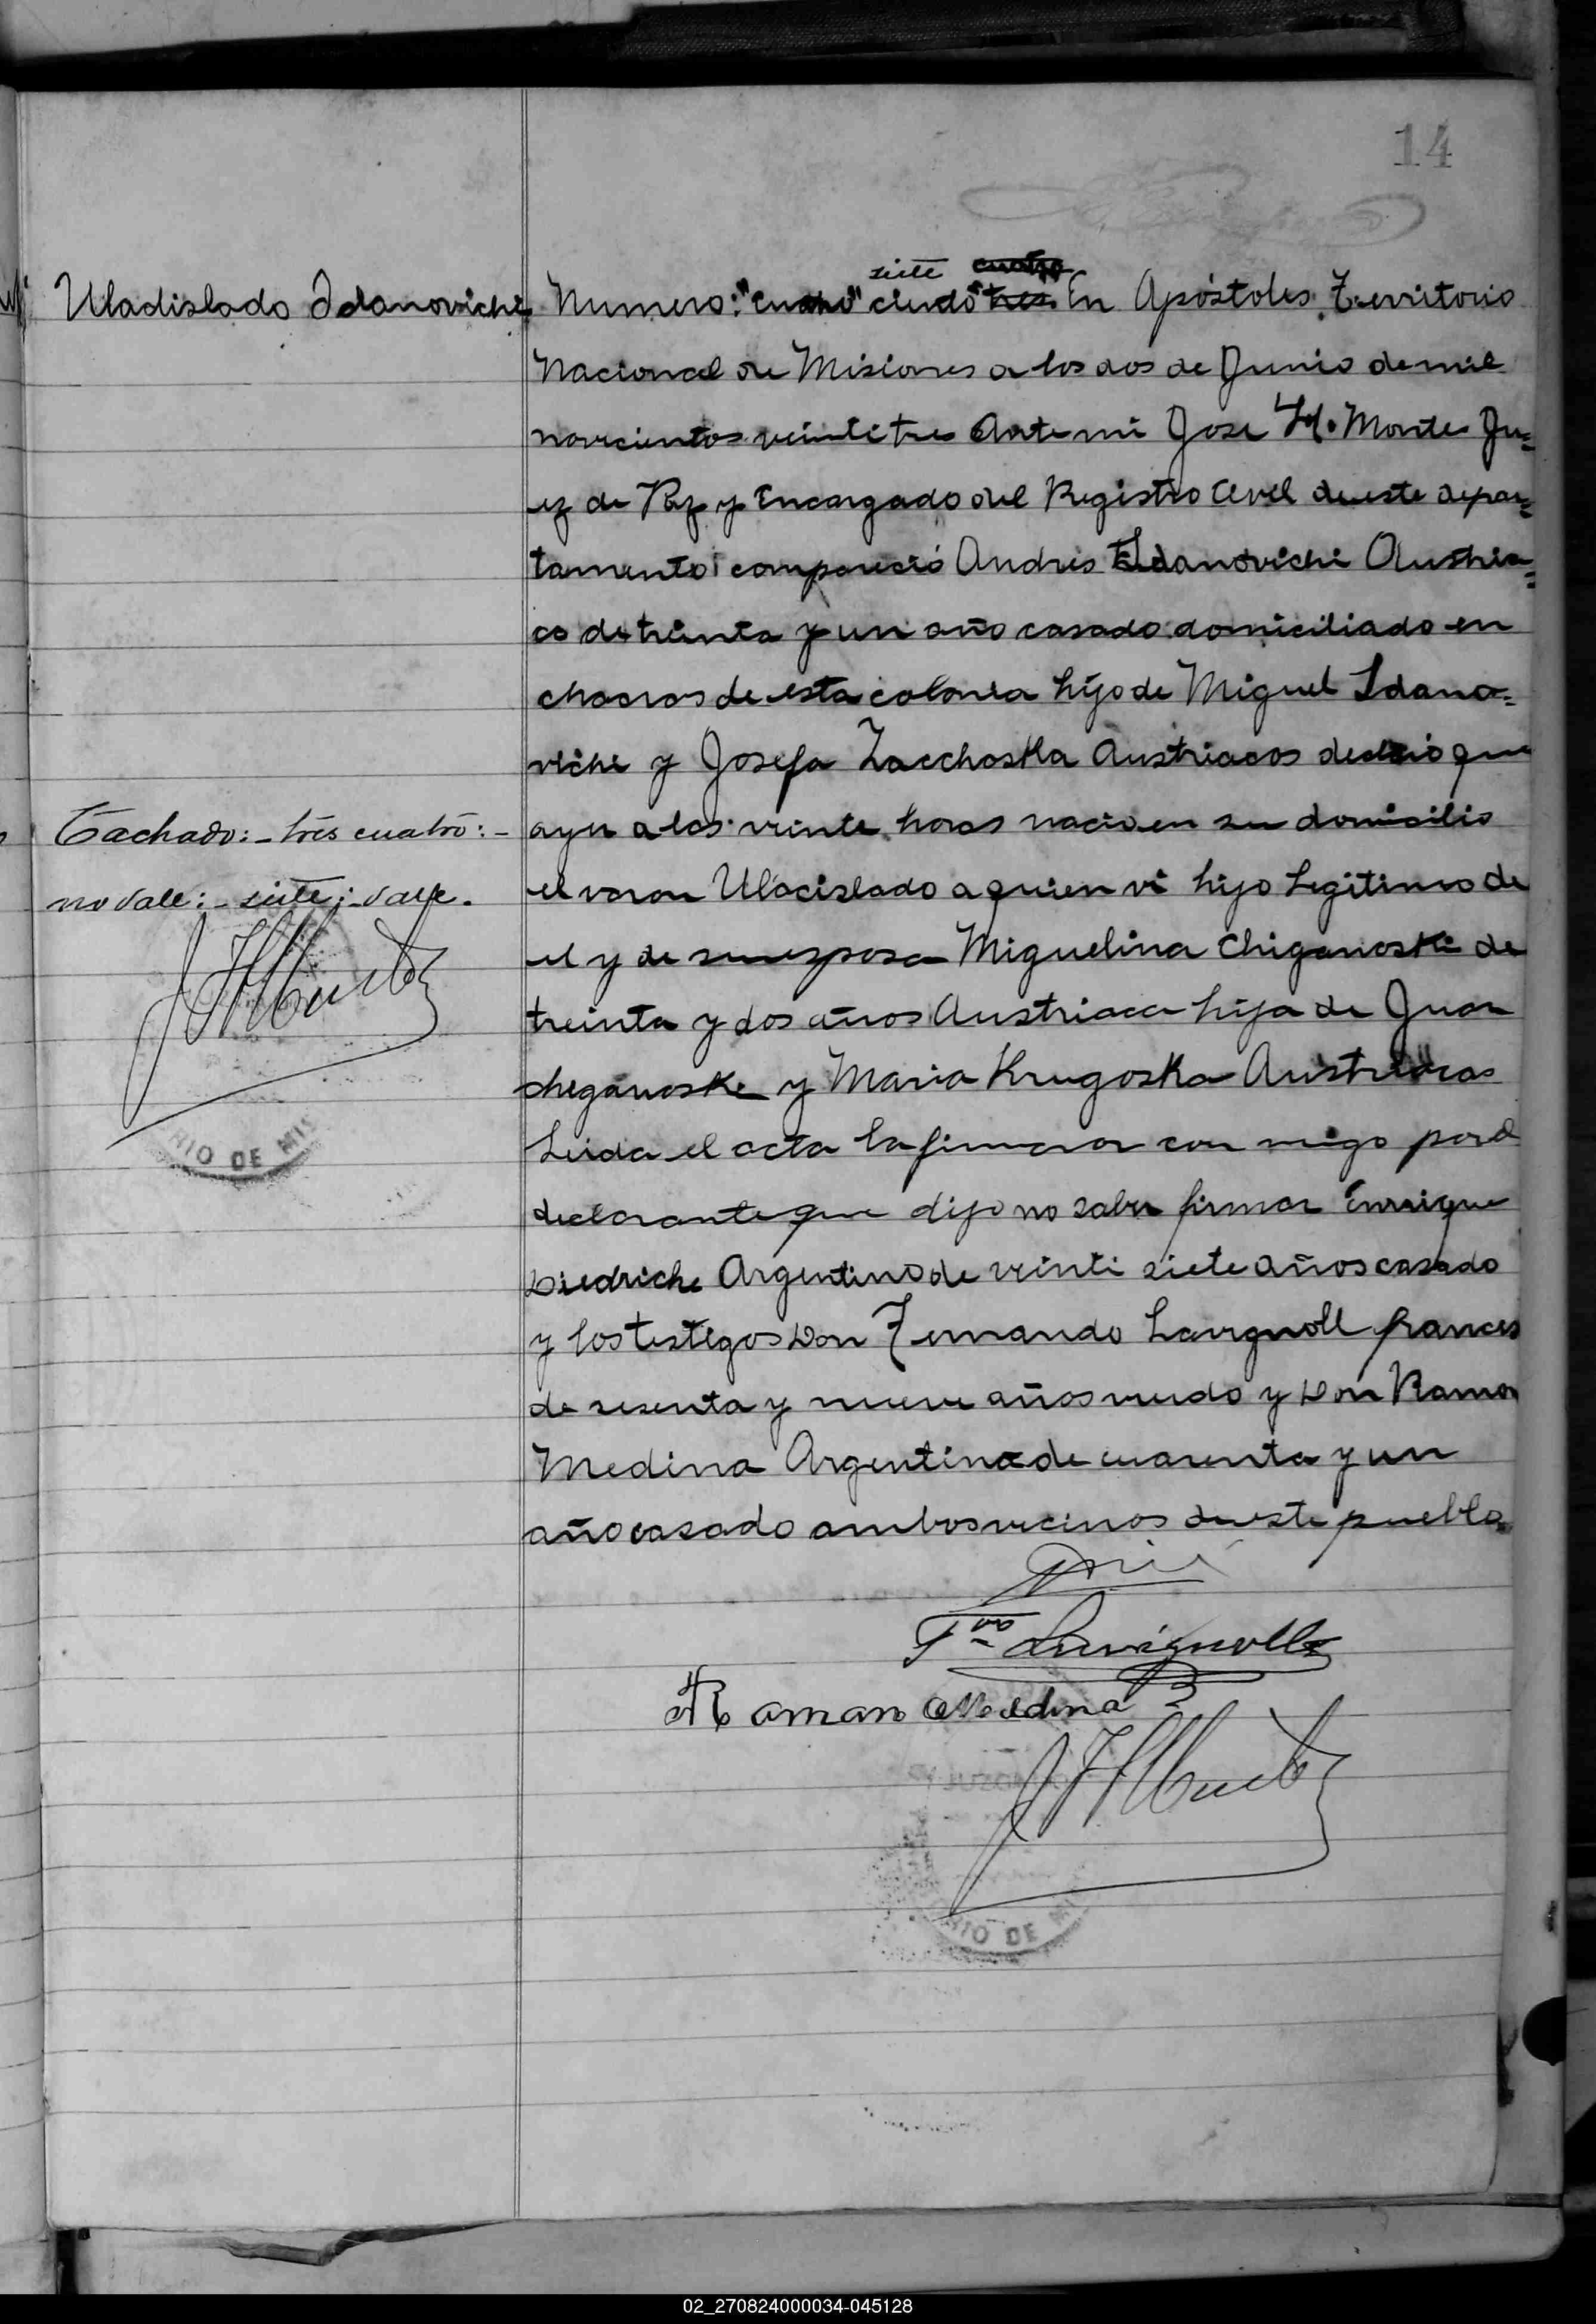 14
Uladislado Idanoviche
siete cuatro
Numero: "cuatro" ciento "tres" En Apóstoles Territorio
Nacional de Misiones a los dos de Junio de mil
novecientos veintitres Ante mi Jose H. Montes Ju=
ez de Paz y Encargado del Registro Cevil de este depar=
tamento compareció Andres Idanoviche Austria=
co de treinta y un año casado domiciliado en
chacras de esta colonia hijo de Miguel Idano=
viche y Josefa Zacchoska Austriacos declaró que
ayer a las veinte horas nacio en su domicilio
el varon Ulacislado a quien vi hijo Legitimo de
el y de su ezposa Miguelina Chiganoski de
treinta y dos años Austriaca hija de Juan
cheganoske y Maria Krugoska Austriacos
Leida el acta la firmaron con migo por el
declarante que dijo no saber firmar Enrique
Diedriche Argentino de veinti siete años casado
y los testigos Don Fernando Lavignoll frances
de sesenta y nueve años viudo y Don Ramon
Medina Argentino de cuarenta y un
año casado ambos vecinos de este pueblo.
Tachado:- tres cuatro:-
no vale:- siete:- vale.
RIO DE MIS
Fdo Lavignolle
Raman Medina
RIO DE MI
02_270824000034-045128